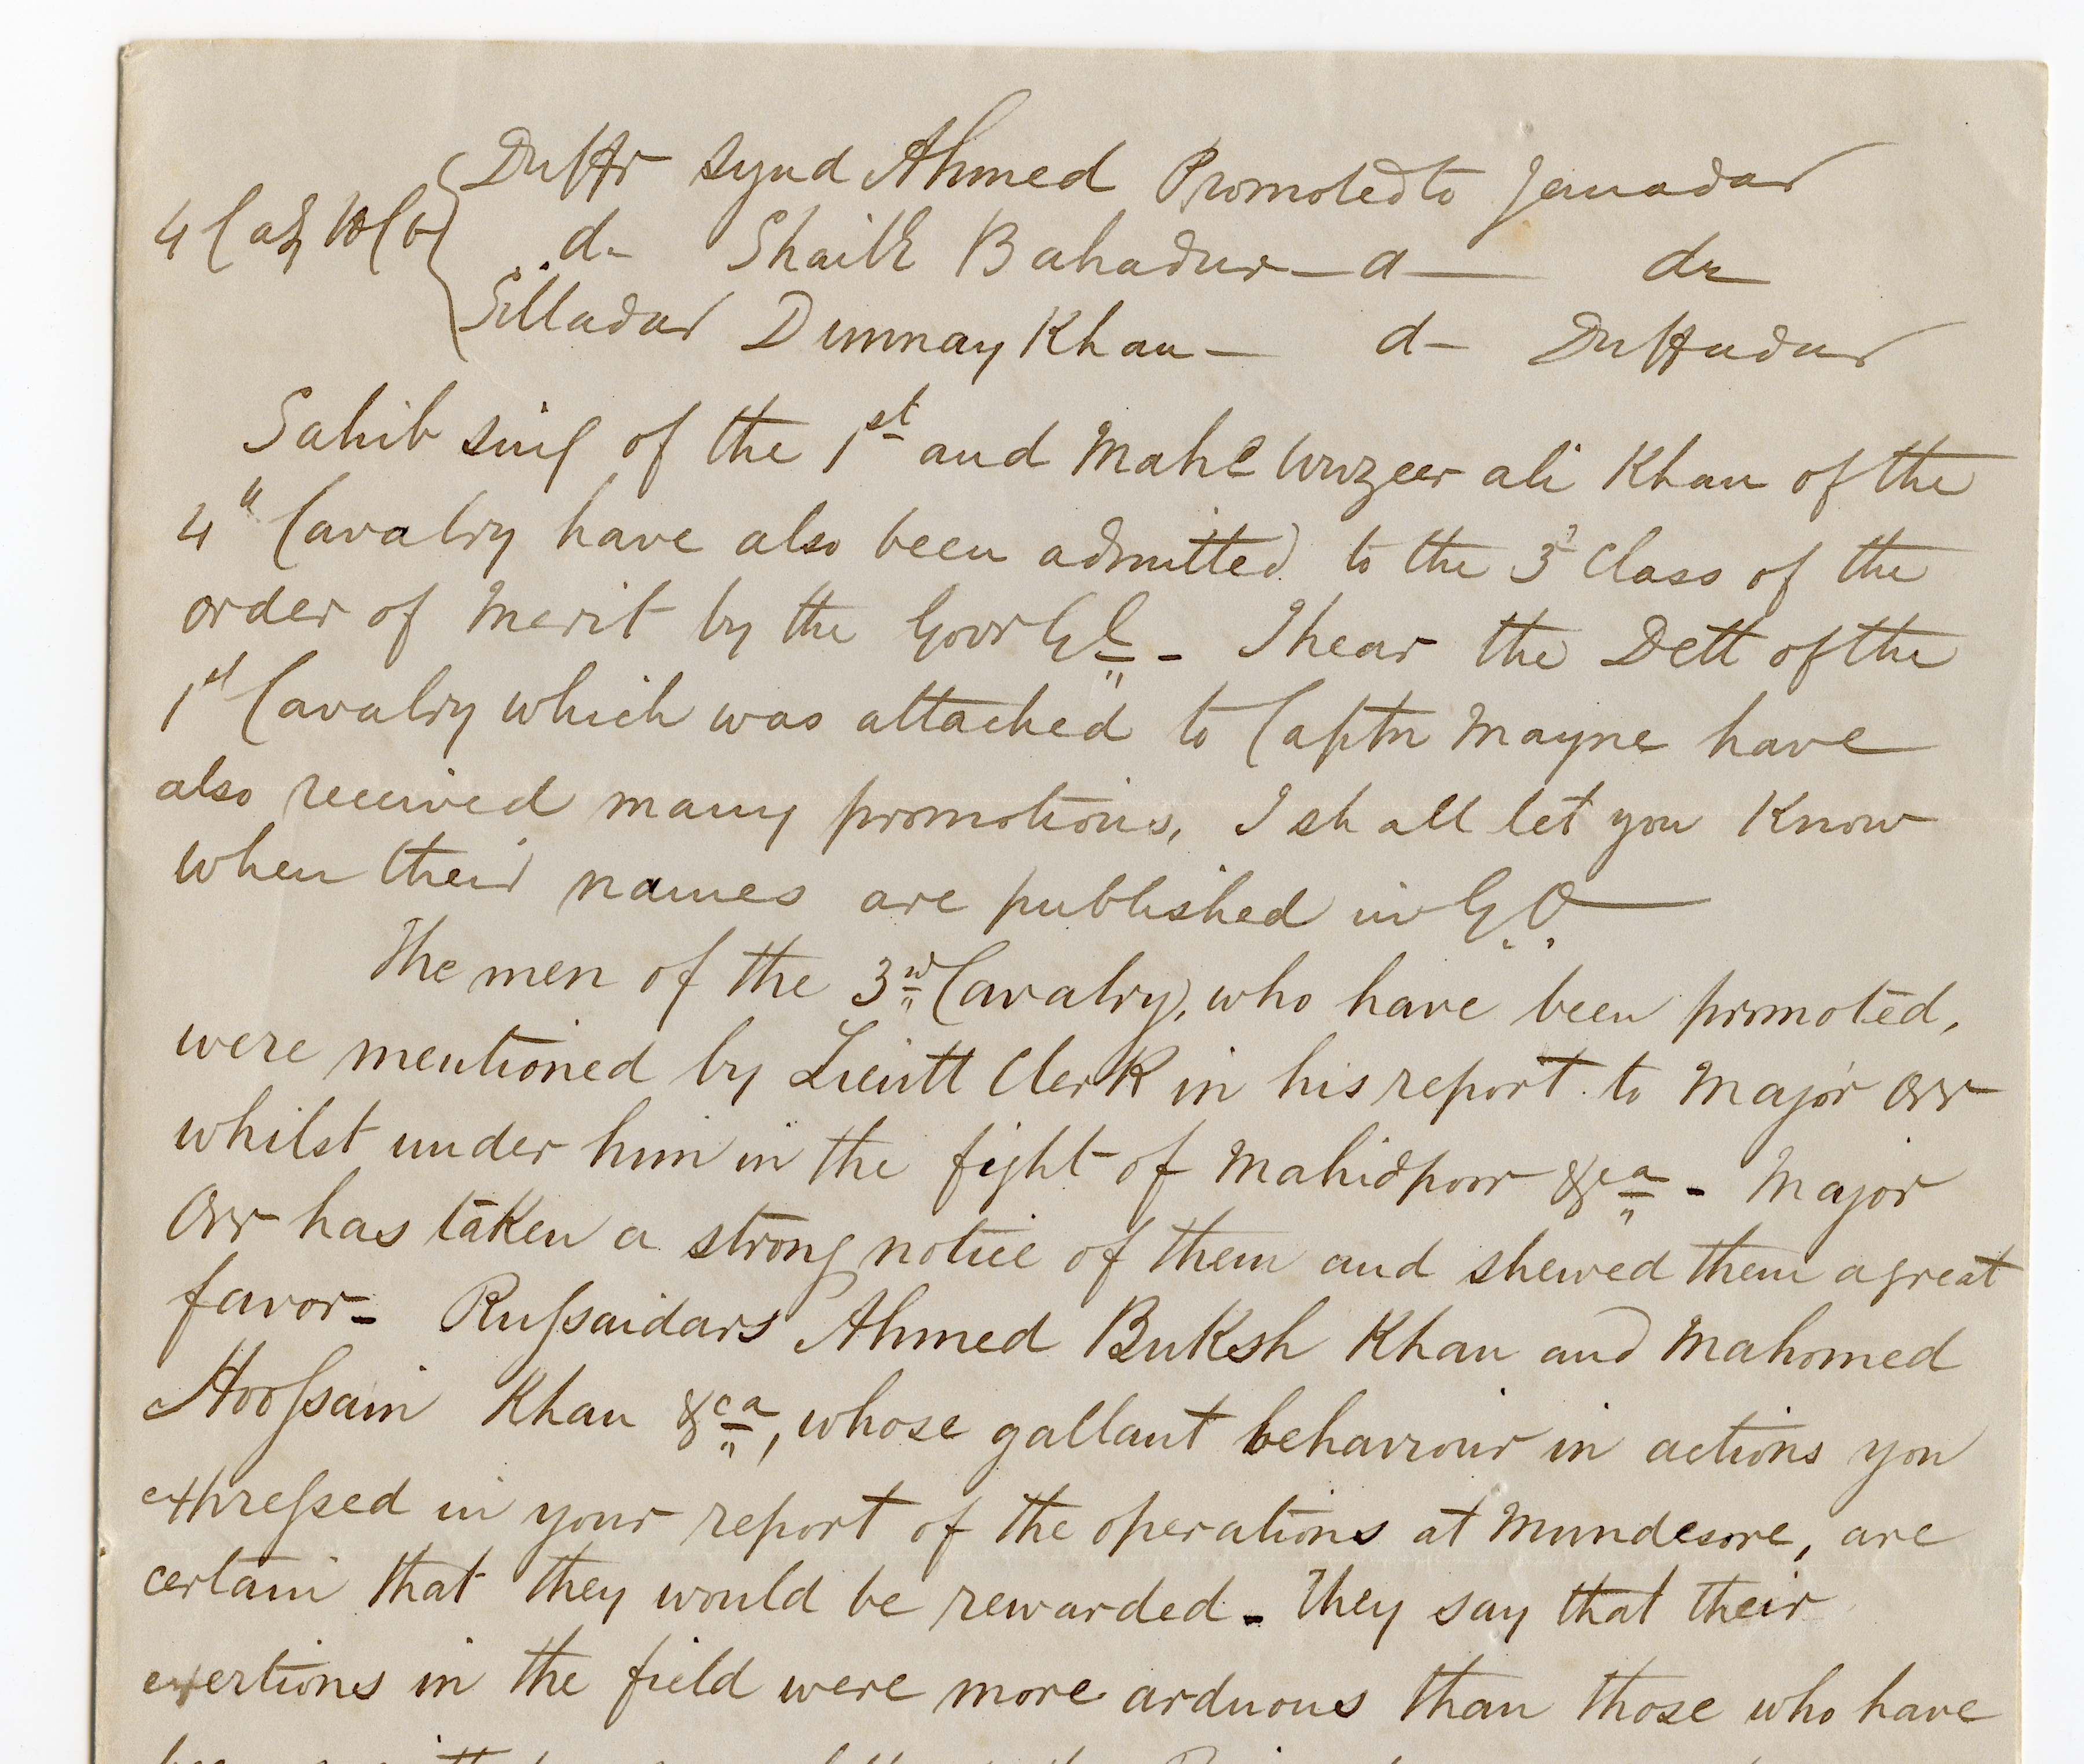 Duffr Synd Ahmed Promoted to Jemadar
4 Cavy H C d- Shaikh Bahadur — d — do
Silladar Dumnay Khan — d — Duffadar
Sahib Sing of the 1st and Mahd Wuzeer ali Khan of the
4th Cavalry have also been admitted to the 3d Class of the
order of Merit by the Govr Gl - I hear the Dett of the
1st Cavalry which was attached to Captn Mayne have
also received many promotions, I shall let you Know
when their names are published in G.O.
The men of the 3rd Cavalry, who have been promoted,
were mentioned by Lieutt Clerk in his report to Major Orr
whilst under him in the fight of Mahidpoor &ca - Major
Orr has taken a strong notice of them and shewed them a great
favor - Russaidars Ahmed Buksh Khan and Mahomed
Hoossain Khan &ca, whose gallant behaviour in actions you
expressed in your report of the operations at Mundesore, are
certain that they would be rewarded - They say that their
exertions in the field were more arduous than those who have